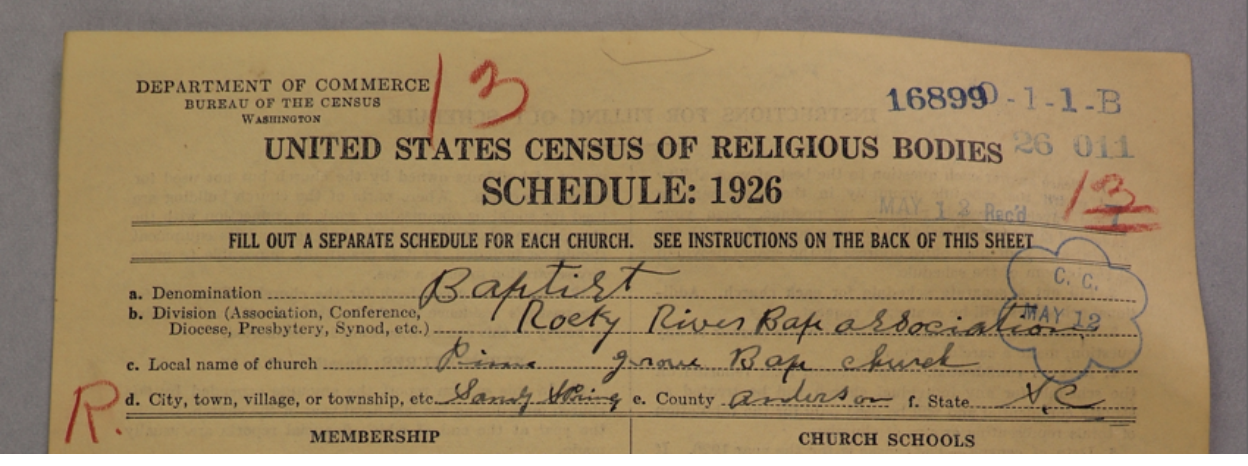 DEPARTMENT OF COMMERCE
BUREAU OF THE CENSUS
WASHINGTON
13
16899D-1-1-B
26 011
UNITED STATES CENSUS OF RELIGIOUS BODIES
SCHEDULE: 1926
MAY 12 Rec'd
13
FILL OUT A SEPARATE SCHEDULE FOR EACH CHURCH. SEE INSTRUCTIONS ON THE BACK OF THIS SHEET
C. C.
MAY 12
a. Denomination Baptist
b. Division (Association, Conference,
Diocese, Presbytery, Synod, etc.) Rocky River Bap association
c. Local name of church grove Bap church
d. City, town, village, or township, etc. Sandy Spring e. County anderson f. State S,C
R.
MEMBERSHIP
CHURCH SCHOOLS